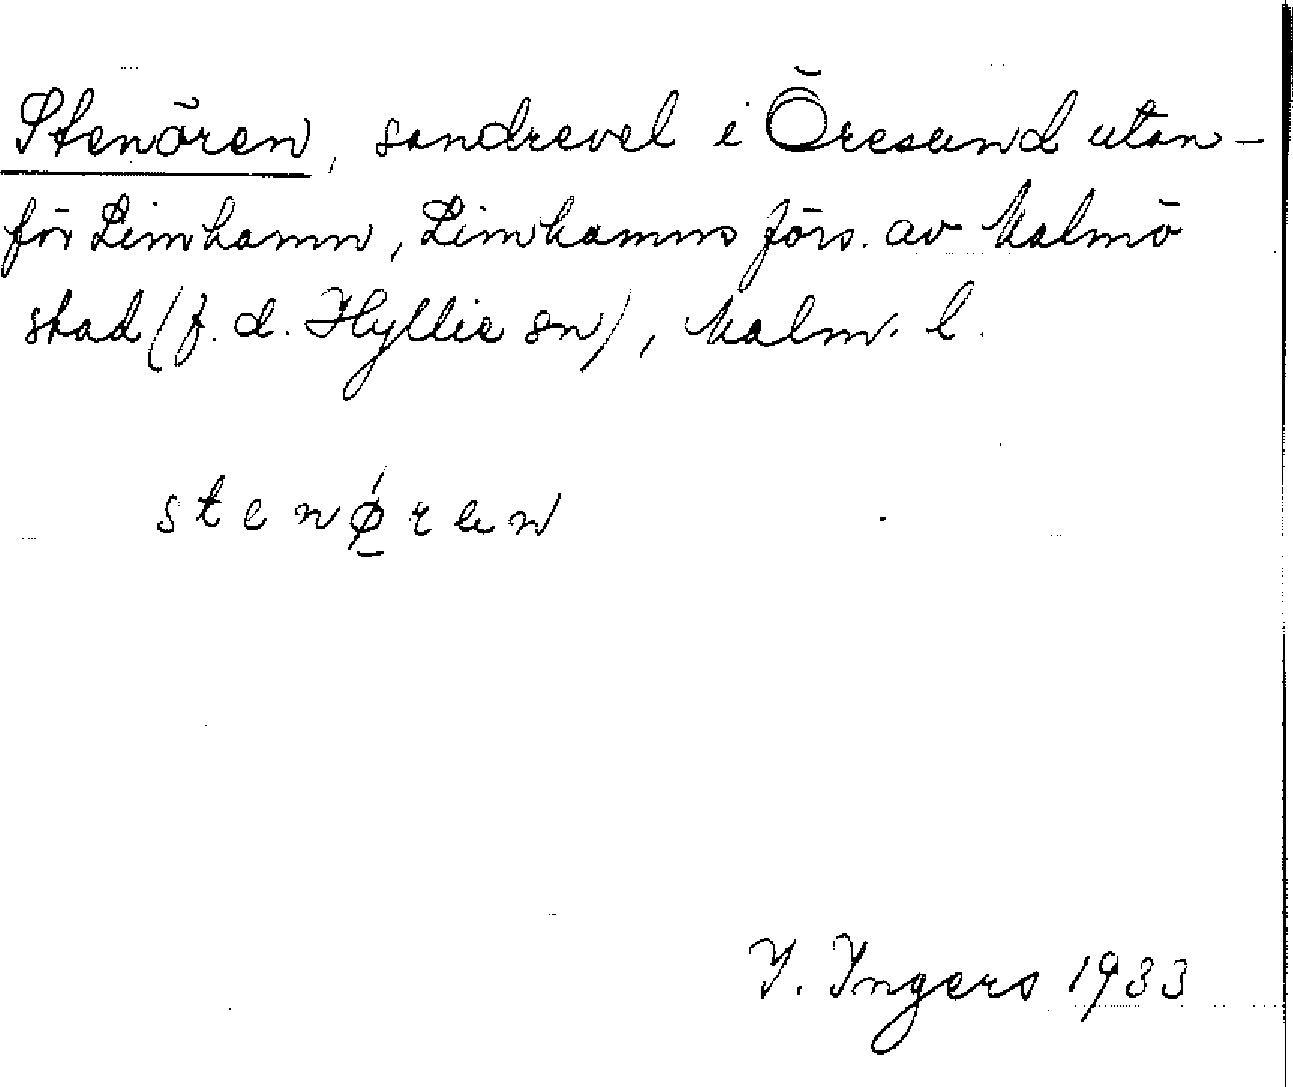 Stenören, sandrevel i Öresund utan-
för Limhamn, Limhamns förs. av Malmö
stad (f. d. Hyllie sn), Malm. l.
stenǿ̲ren
I. Ingers 1933